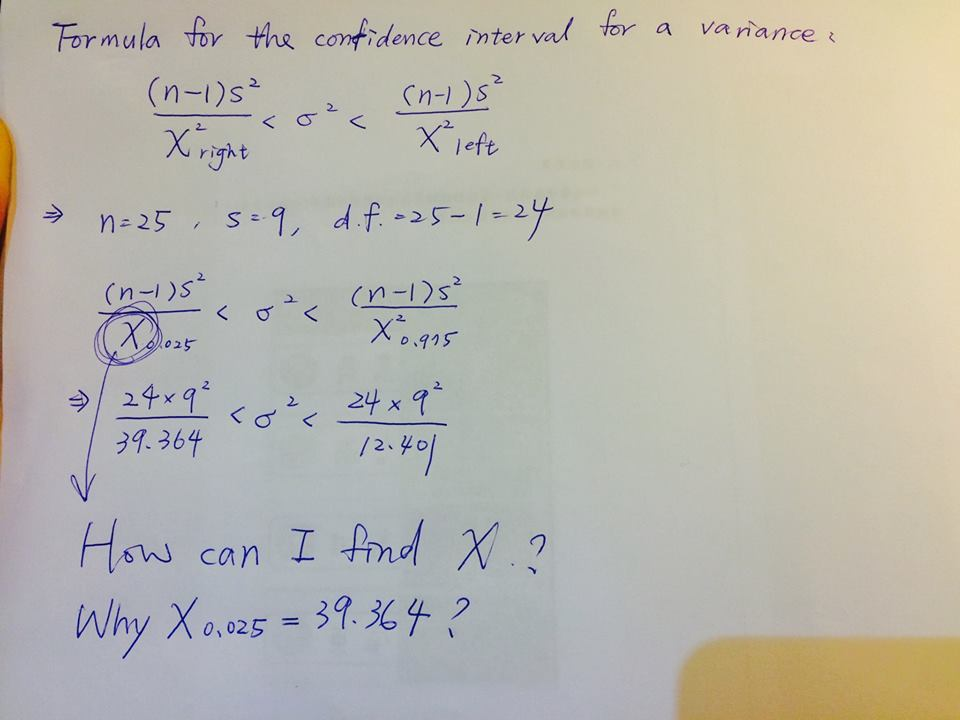 Formula for the confidence interval for a variance:
(n-1)s² / χ²right < σ² < (n-1)s² / χ²left
⇒ n=25, s=9, d.f.=25-1=24
(n-1)s² / χ0.025 < σ² < (n-1)s² / χ²0.975
⇒ 24×9² / 39.364 < σ² < 24×9² / 12.401
How can I find χ.?
Why χ0.025 = 39.364?